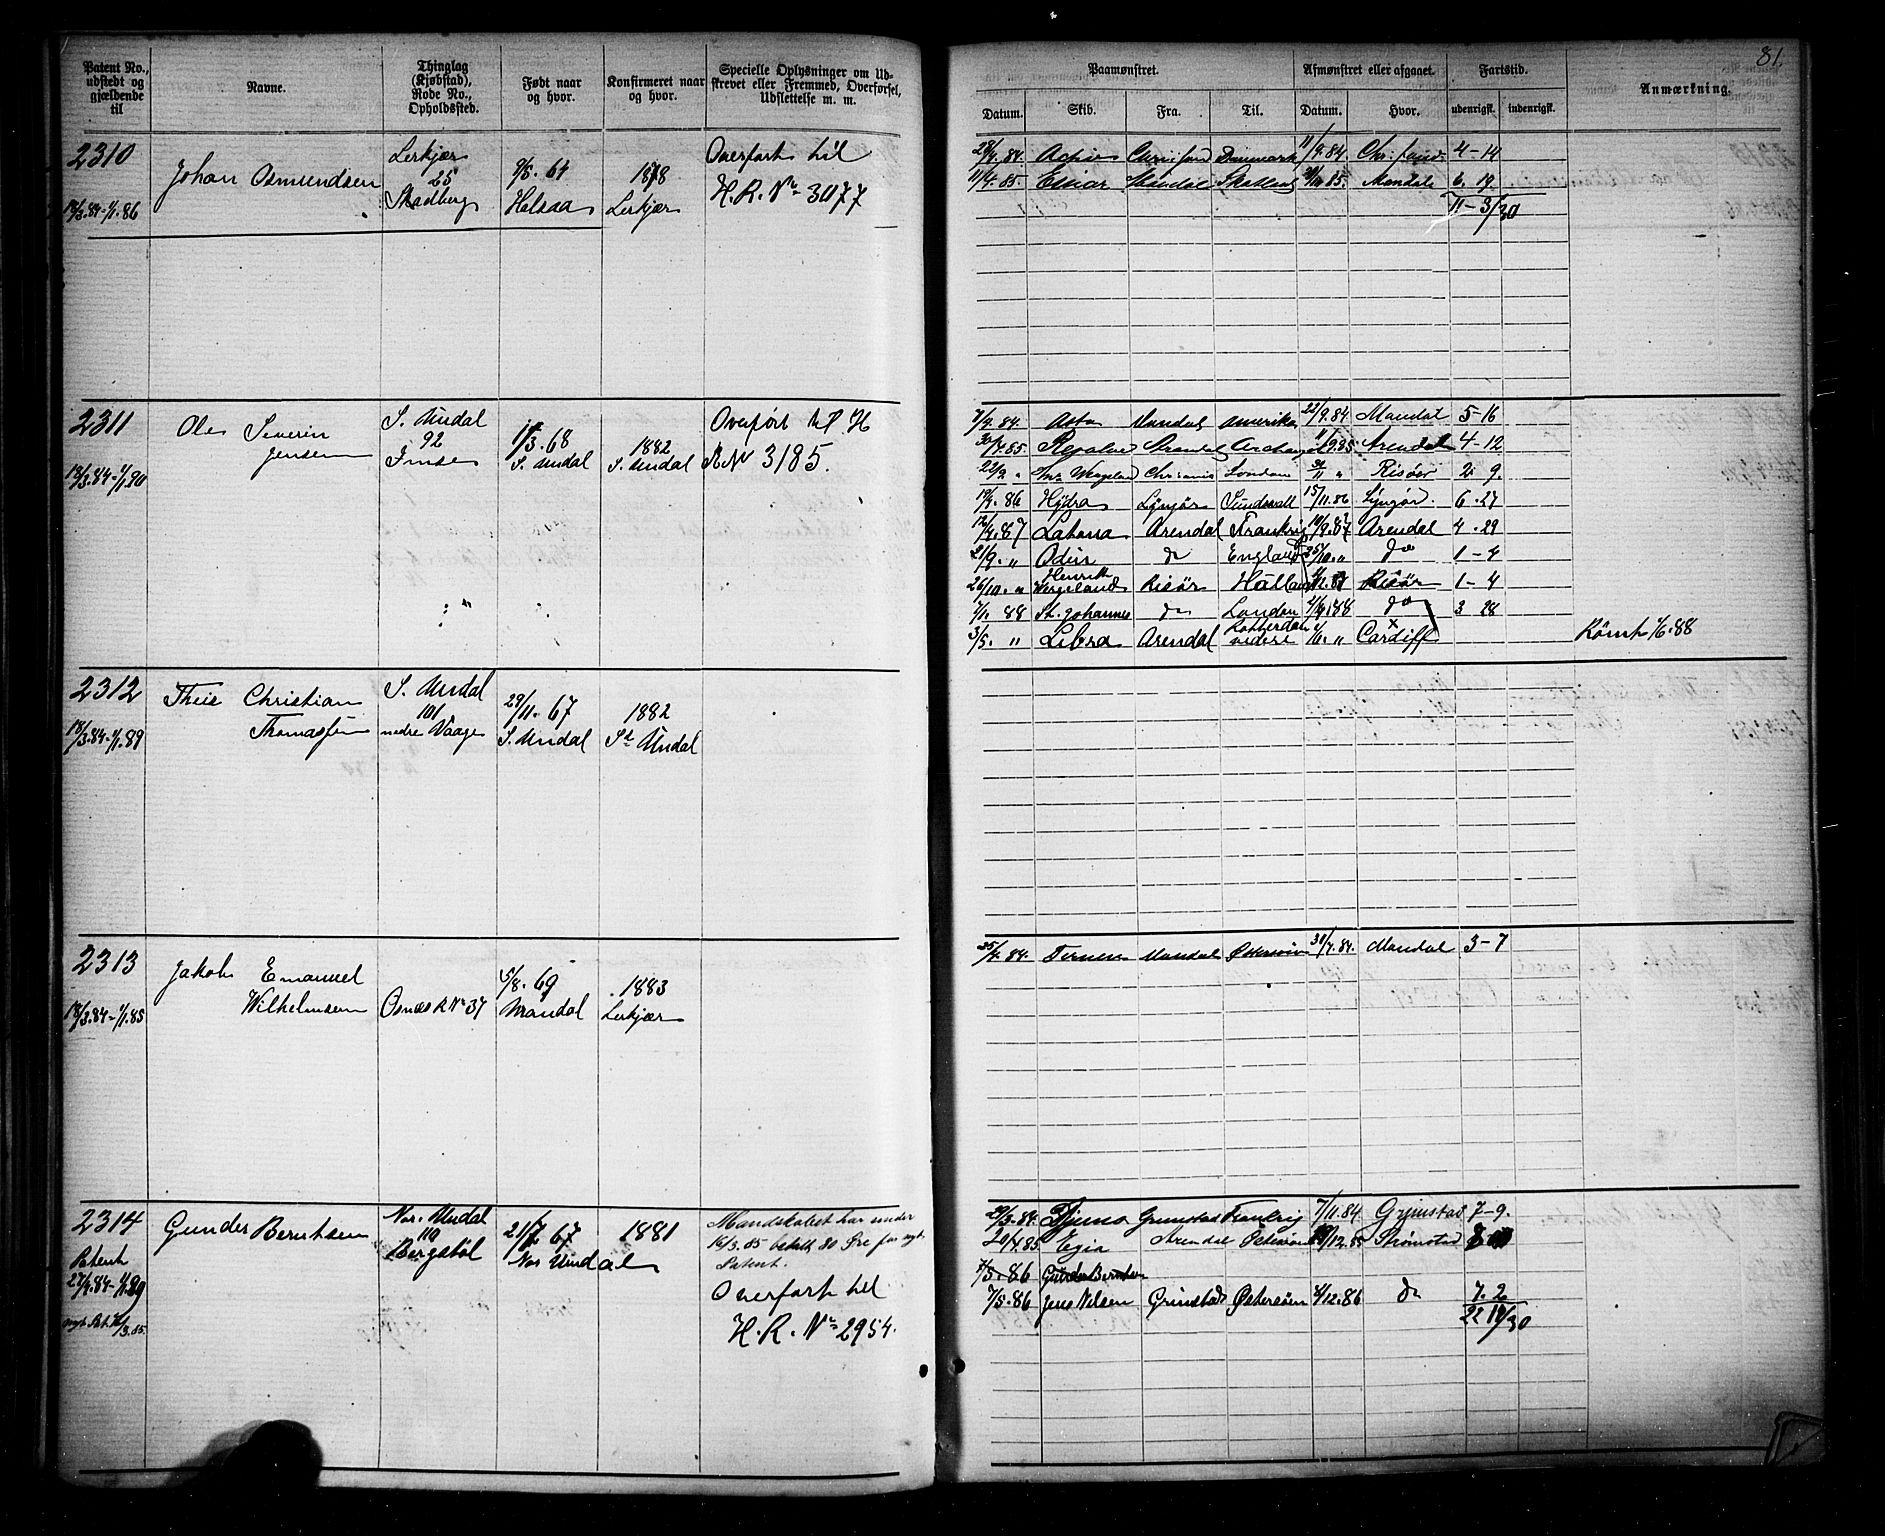 81.
Patent No., udstedt og gjældende til
Navne.
Thinglag (Kjøbstad), Rode No., Opholdssted.
Født naar og hvor.
Konfirmeret naar og hvor.
Specielle Oplysninger om Udskrevet eller Fremmed, Overførsel, Udslettelse m. m.
Paamønstret.
Datum. Skib. Fra. Til.
Afmønstret eller afgaaet.
Datum. Hvor.
Fartstid.
udenrigsk. indenrigsk.
Anmærkning.
2310
18/3.84-1/1.86
Johan Osmundsen
Lerkjær
25
Skadberg
9/8.64
Halsaa
1878
Lerkjær
Overført til
H.R. No 3077
28/4.84. Danmark 11/9.84 Chr.sand 4-14
11/4.85. Einar Mandal 85. Mandal 6.19
11-3/30
2311
18/3.84-1/1.90
Ole Severin
Jensen
S. Undal
92
1/3.68
S. Undal
1882
S. Undal
Overført til H
RN 3185.
7/4.84. Asta Mandal Amerika 22/9.84. Mandal 5-16
30/4.85. Archangel 11/9.85 Arendal 4-12
22/9 " Wergeland London 30/11 " Risöer 2 9.
19/4.86 Hydra Lyngör Sundsvall 15/11.86 Lyngör. 6-27
12/4.87 Latona Arendal Frankrig 10/9.87 Arendal 4.29
21/9. " Odin do England 25/10. " do 1-4
26/10. " Henrik Wergeland Risör Holland 11.87 Risör 1-4
2/1. 88 St. Johannes do London 88 do 3 28
3/5. " Libra Arendal Rotterdam videre 1/6. " Cardiff
Römt 1/6.88
2312
18/3.84-1/1.89
Theis Christian
Thomassen
S. Undal
101
nedre Vaage
29/11.67
S. Undal
1882
S. Undal
2313
18/3.84-1/1.85
Jakob Emanuel
Wilhelmsen
Osnæs R No 37
5/8.69
Mandal
1883
Lerkjær
25/4.84. Ternen Mandal Østersöen 31/7.84. Mandal 3-7
2314
Patent
27/3.84-1/1.89
nyt Pat. 16/3.85.
Gunder Berntsen
Nor. Undal
110
Bergstöl
21/7.67
Nor Undal
1881
Mandskabet har under
16/3.85 betalt 80 Øre for nyt
Patent.
Overført til
H.R. No 2954.
29/3.84. Grimstad Frankrig 7/11.84 Grimstad 7-9.
20/4.85 Egia Arendal Østersöen 12.85 Strömstad 8
7/5.86 Gunder Berntsen
7/5.86 Jens Nilsen Grimstad Østersöen 4/12.86 do 7.2
22 18/30